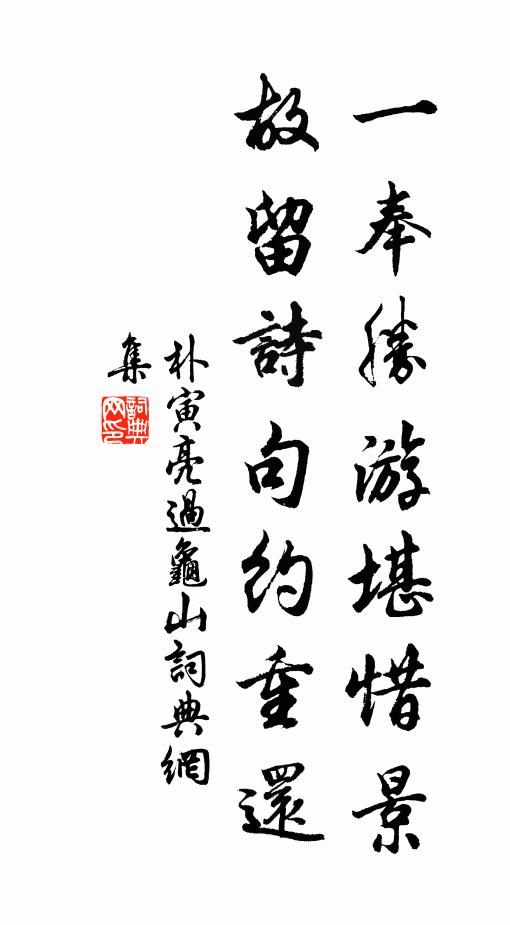 一奉勝游堪惜景
故留詩句約重還
朴寅亮過龜山詞典網
集
詞典
网印